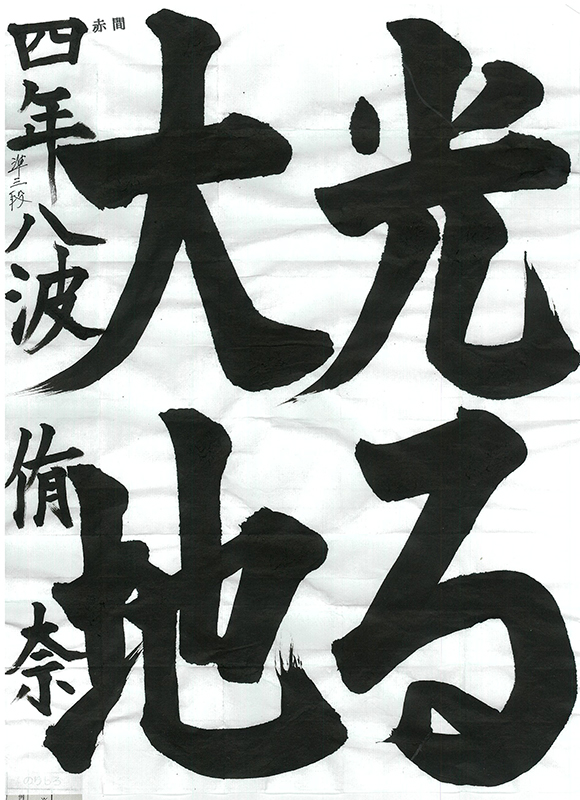 光る
大地
赤間
四年 八波 侑奈
準三段
のりしろ